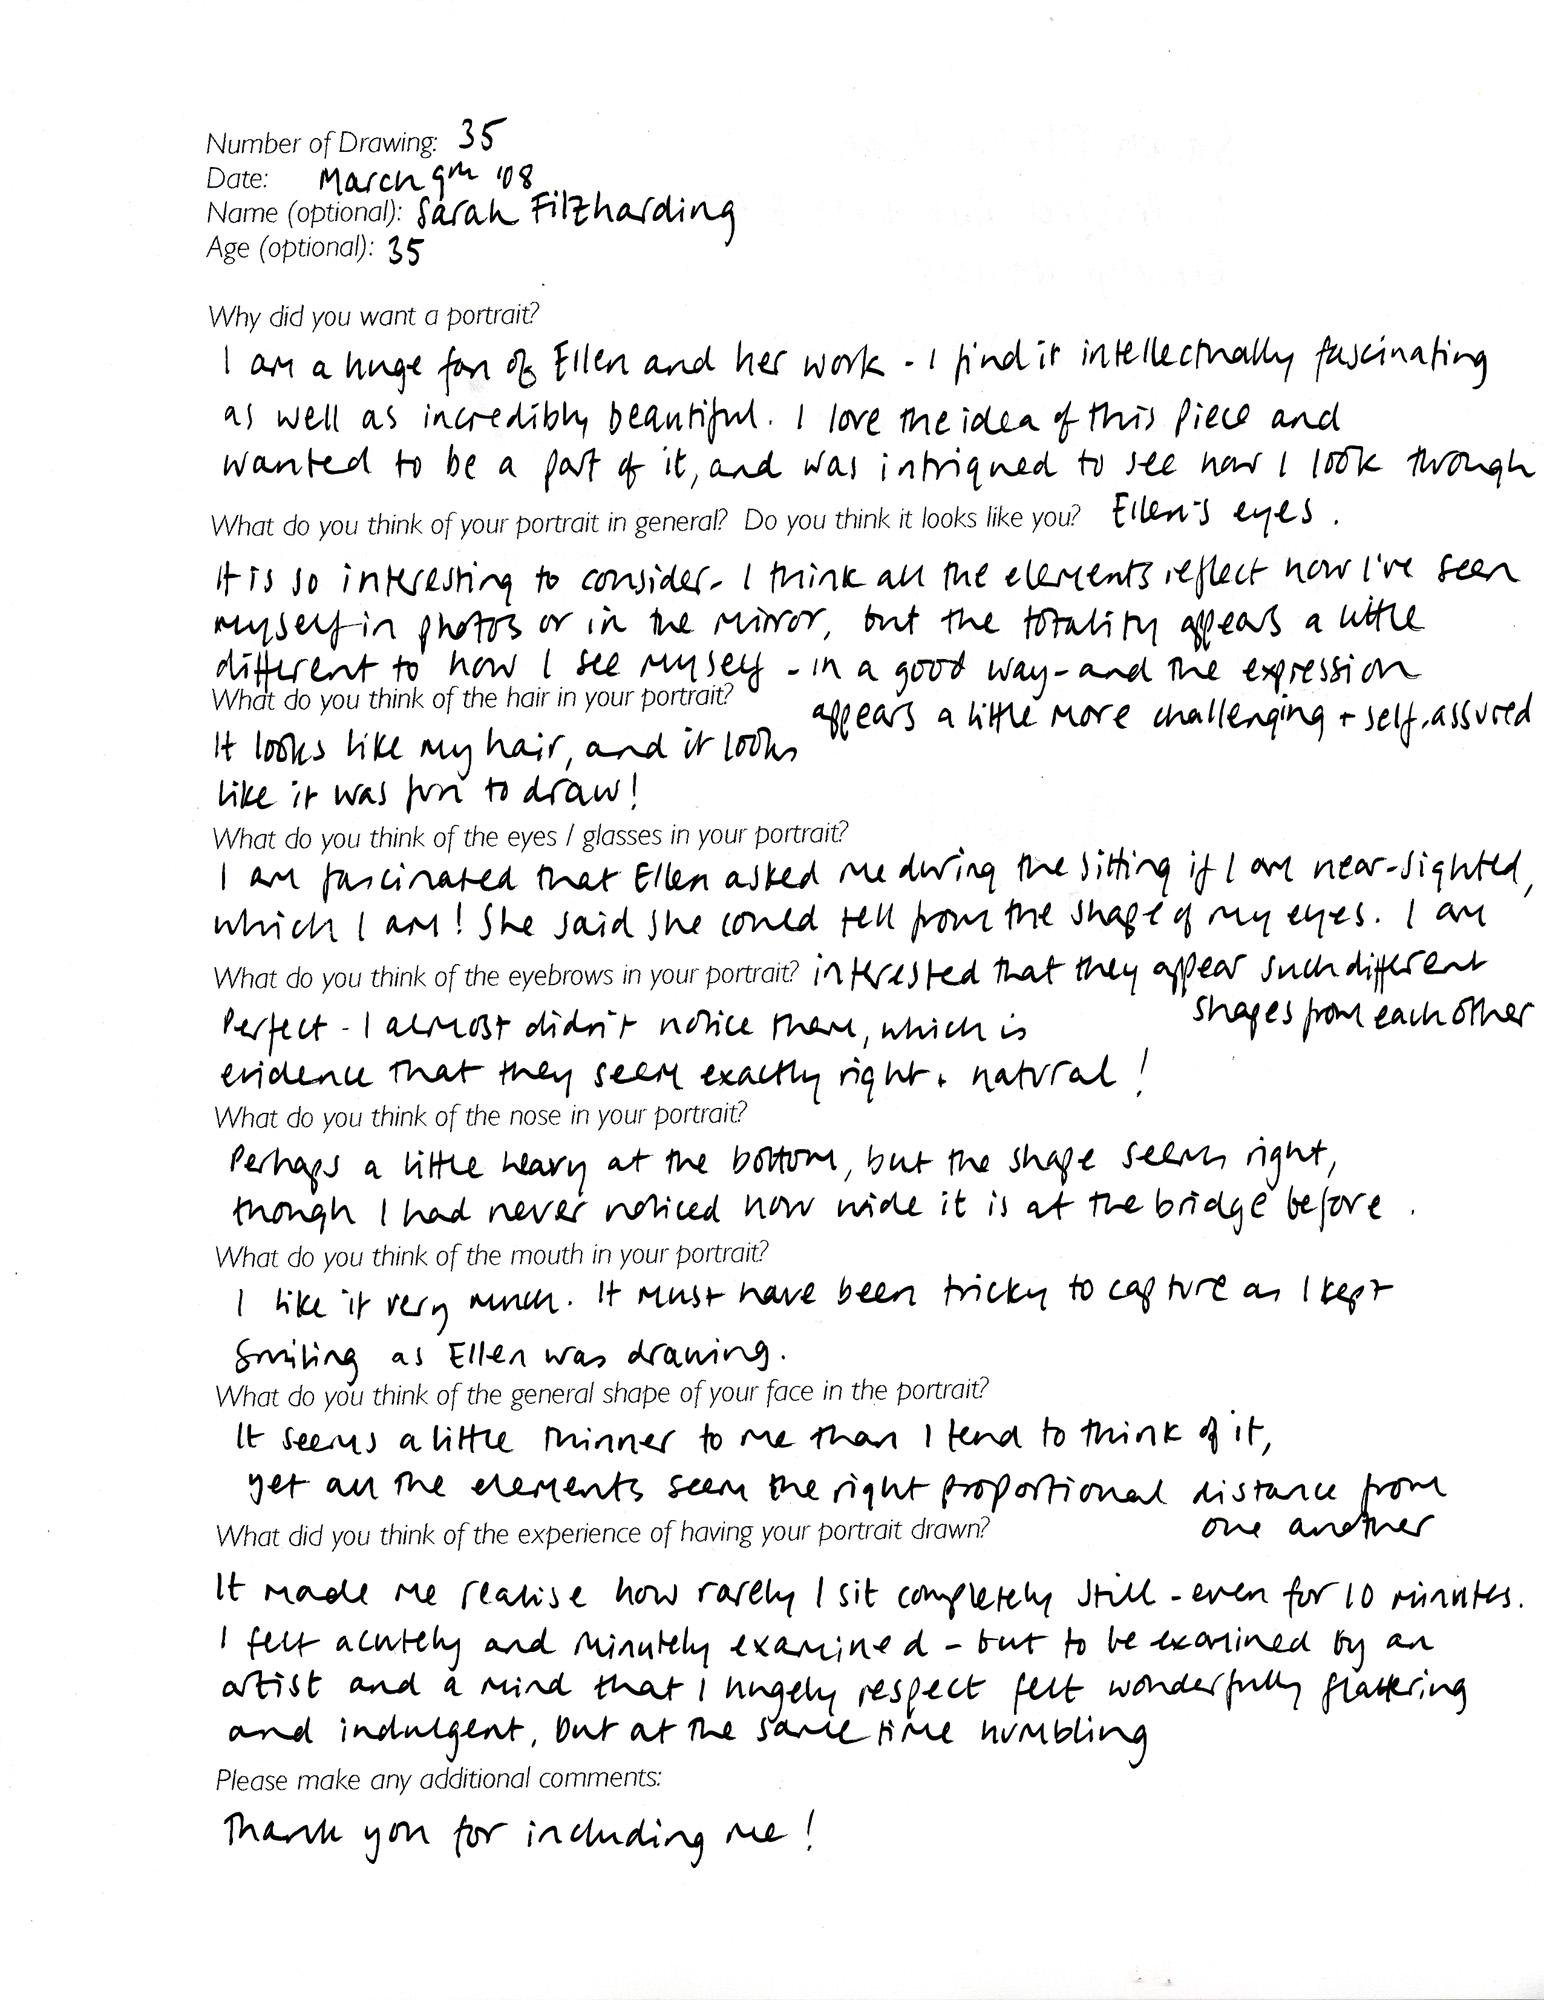 Number of Drawing: 35
Date: March 9th '08
Name (optional): Sarah Fitzharding
Age (optional): 35
Why did you want a portrait?
I am a huge fan of Ellen and her work - I find it intellectually fascinating
as well as incredibly beautiful. I love the idea of this piece and
wanted to be a part of it, and was intrigued to see how I look through
Ellen's eyes.
What do you think of your portrait in general? Do you think it looks like you?
It is so interesting to consider - I think all the elements reflect how I've seen
myself in photos or in the mirror, but the totality appears a little
different to how I see myself - in a good way - and the expression
appears a little more challenging + self-assured
What do you think of the hair in your portrait?
It looks like my hair, and it looks
like it was fun to draw!
What do you think of the eyes / glasses in your portrait?
I am fascinated that Ellen asked me during the sitting if I am near-sighted,
which I am! She said she could tell from the shape of my eyes. I am
interested that they appear such different
shapes from each other
What do you think of the eyebrows in your portrait?
Perfect - I almost didn't notice them, which is
evidence that they seem exactly right + natural!
What do you think of the nose in your portrait?
Perhaps a little heavy at the bottom, but the shape seems right,
though I had never noticed how wide it is at the bridge before.
What do you think of the mouth in your portrait?
I like it very much. It must have been tricky to capture as I kept
smiling as Ellen was drawing.
What do you think of the general shape of your face in the portrait?
It seems a little thinner to me than I tend to think of it,
yet all the elements seem the right proportional distance from
one another
What did you think of the experience of having your portrait drawn?
It made me realise how rarely I sit completely still - even for 10 minutes.
I felt acutely and minutely examined - but to be examined by an
artist and a mind that I hugely respect felt wonderfully flattering
and indulgent, but at the same time humbling
Please make any additional comments:
Thank you for including me!